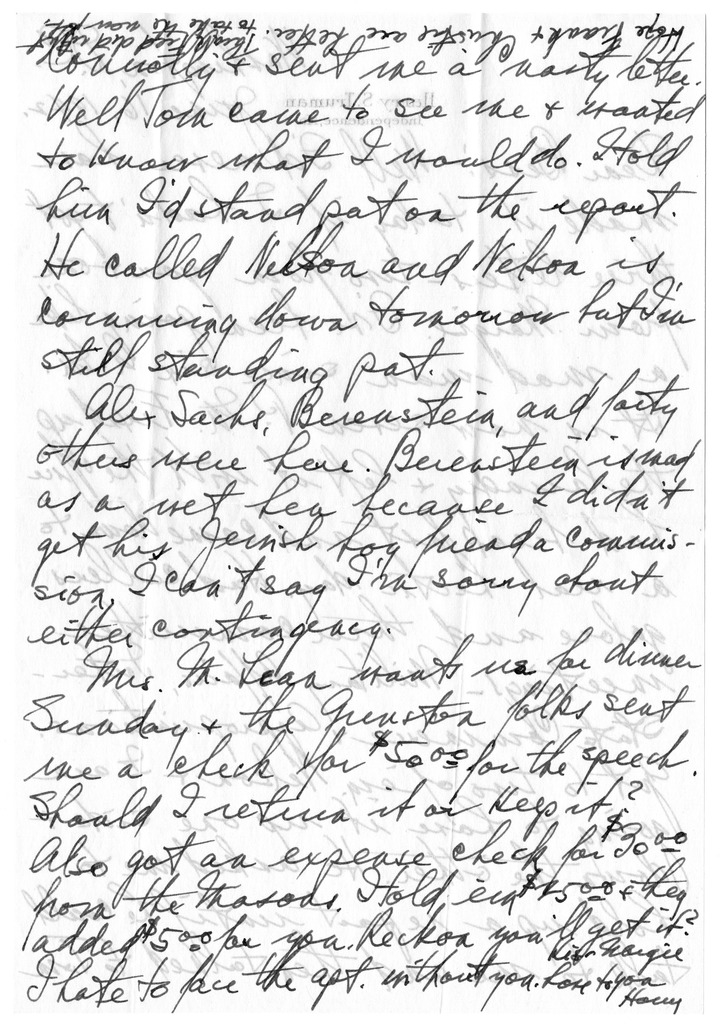 Hope Frank & Christine are better. Think Fred did right
to take the
Connolly & sent me a nasty letter.
Well Tom came to see me & wanted
to know what I would do. I told
him I'd stand pat on the report.
He called Nelson and Nelson is
comming down tomorrow but I'm
still standing pat.
Alex Sachs, Berenstein, and forty
others were here. Berenstein is mad
as a wet hen because I didn't
get his Jewish boy friend a commis-
sion. I can't say I'm sorry about
either contingency.
Mrs. McLean wants us for dinner
Sunday & the Gunston folks sent
me a check for $50 00 for the speech.
Should I return it or keep it?
Also got an expense check for $30 00
from the Masons. I told em $45 00 & they
added $5 00 for you. Reckon you'll get it?
Kiss Margie
I hate to face the apt. without you. Love to you
Harry
Harry S. Truman
Independence,